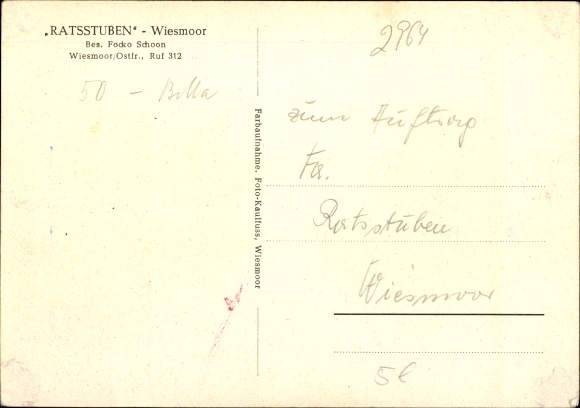 „RATSSTUBEN" - Wiesmoor
Bes. Focko Schoon
Wiesmoor/Ostfr., Ruf 312
50 - Bella
Farbaufnahme. Foto-Kaulfuss, Wiesmoor
2964
zum Auftrag
Fa.
Ratsstuben
Wiesmoor